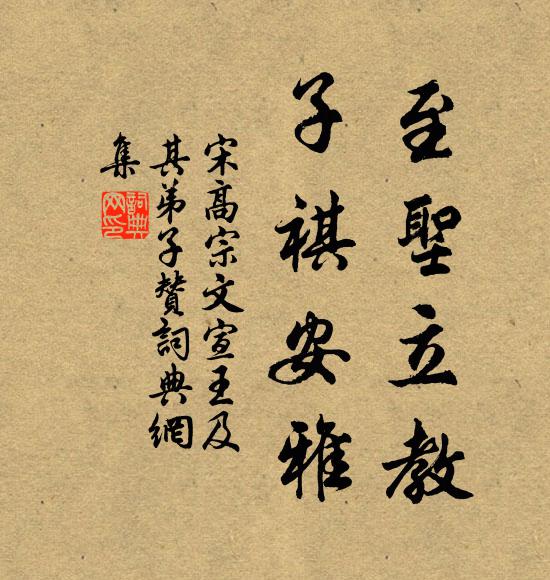 至聖立教
子祺安雅
宋高宗文宣王及
其弟子贊詞典網
集
詞典
网印